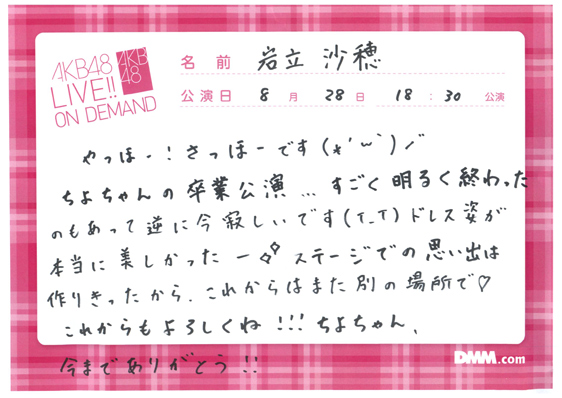 AKB48
LIVE!!
ON DEMAND
AKB
48
名前 岩立 沙穂
公演日 8月 28日 18:30 公演
やっほー!さっほーです(*'ω`)ノ
ちよちゃんの卒業公演...すごく明るく終わった
のもあって逆に今寂しいです(T_T)ドレス姿が
本当に美しかったー ステージでの思い出は
作りきったから、これからはまた別の場所で♡
これからもよろしくね!!!ちよちゃん、
今までありがとう!!
DMM.com